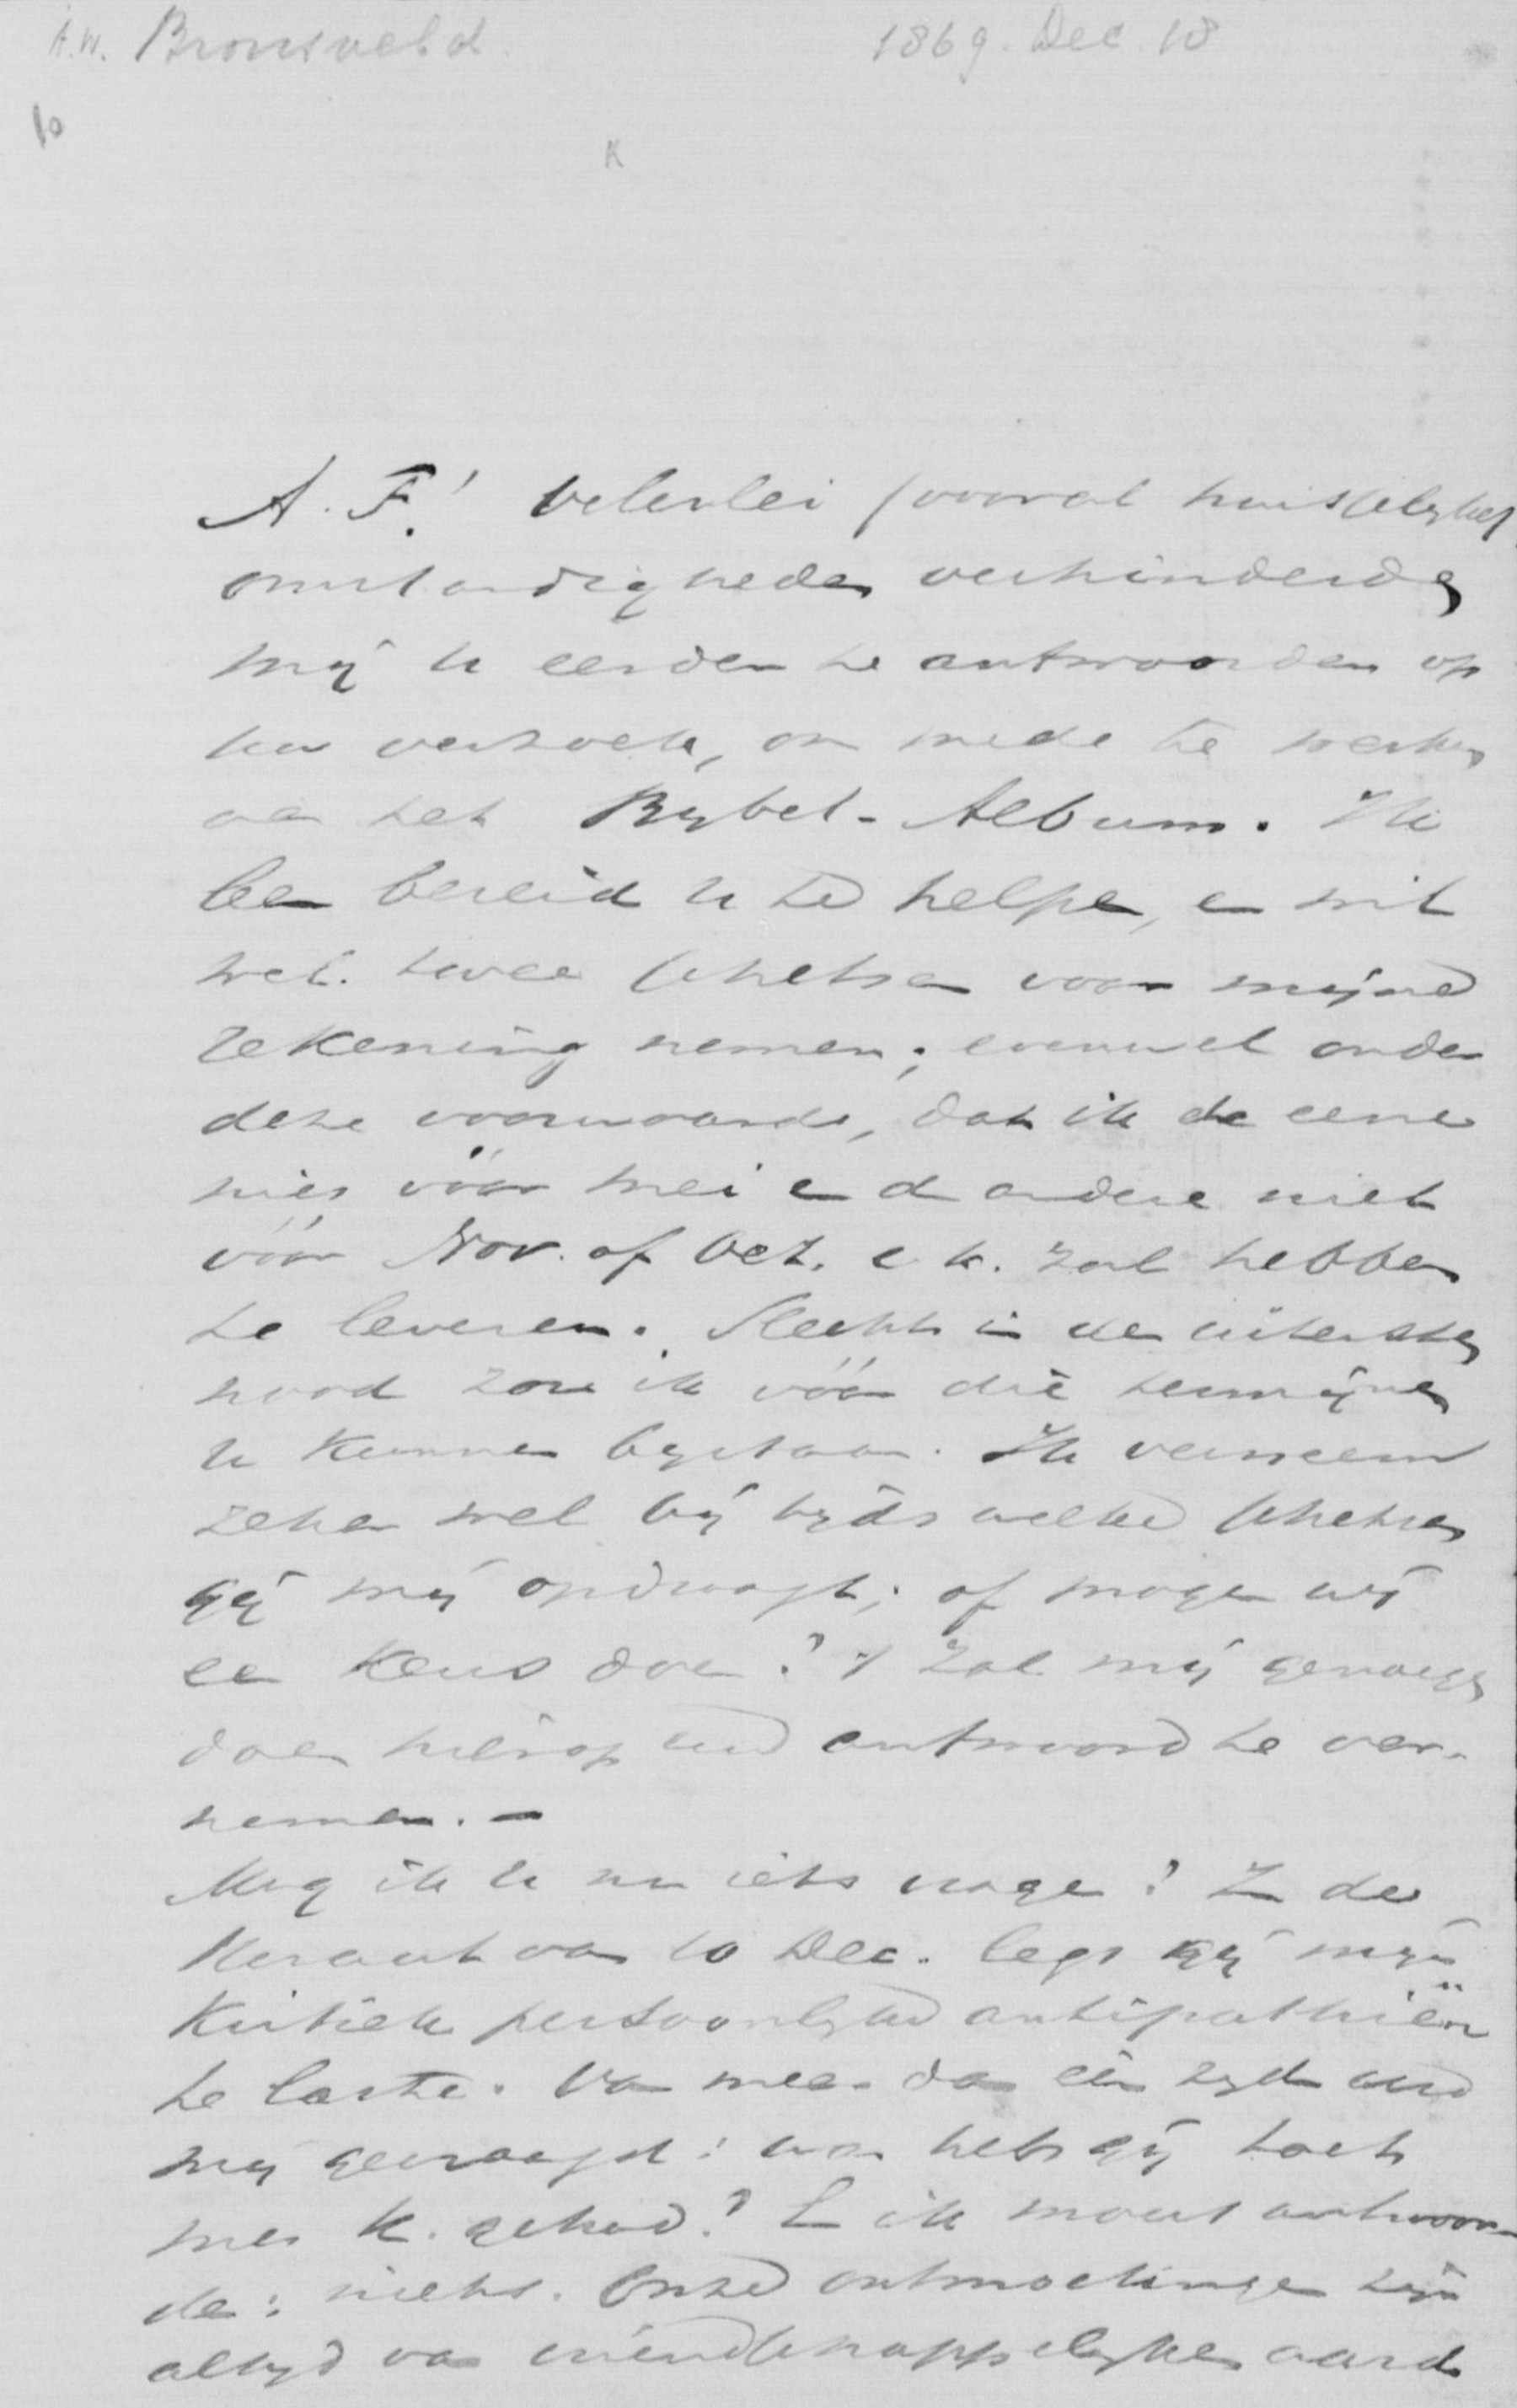 A.W. Bronsveld. 1869. Dec. 18
10
K
A. F.! Velerlei (vooral huisselijke)
omstandigheden verhinderden
mij u eerder te antwoorden op
uw verzoek, om mede te werken
aan het Bijbel-Album. Ik
ben bereid u te helpen, en wil
wel twee schetsen voor mijne
rekening nemen; evenwel onder
deze voorwaarde, dat ik de eene
niet vóór Mei en de andere niet
vóór Nov. of Oct. e.k. zal hebben
te leveren. Slechts in den uitersten
nood zou ik vóór die termijnen
u kunnen bijstaan. Ik verneem
zeker wel bij tijds welke schetsen
gij mij opdraagt; of mogen wij
een keus doen? 't Zal mij genoegen
doen hierop uw antwoord te ver-
nemen. –
Mag ik u nu iets vragen? In de
Heraut van 10 Dec. legt gij mijn
kritiek persoonlijke antipathiën
te laste. Van meer dan één zijde werd
mij gevraagd: wat hebt gij toch
met K. gehad? En ik moest antwoor-
den: niets. Onze ontmoetingen zijn
altijd van vriendschappelijken aard